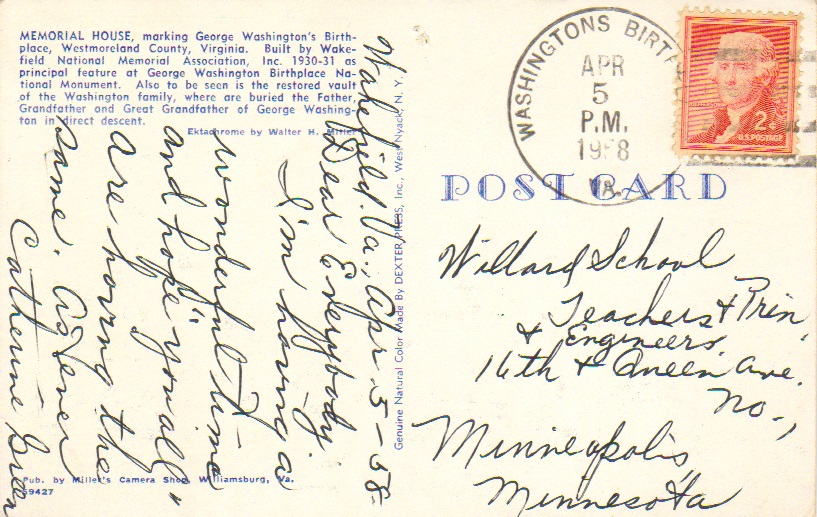 MEMORIAL HOUSE, marking George Washington's Birth-
place, Westmoreland County, Virginia. Built by Wake-
field National Memorial Association, Inc. 1930-31 as
principal feature at George Washington Birthplace Na-
tional Monument. Also to be seen is the restored vault
of the Washington family, where are buried the Father,
Grandfather and Great Grandfather of George Washing-
ton in direct descent.
Ektachrome by Walter H. Miller
Wakefield, Va., Apr. 5-58
Dear Everybody,
I'm having a
wonderful time
and hope "you all"
are having the
same. As ever
Catherine
Pub. by Miller's Camera Shop, Williamsburg, Va.
59427
Genuine Natural Color Made By DEXTER PRESS, Inc., West Nyack, N. Y.
WASHINGTONS BIRTH
APR
5
P.M.
1958
VA.
2¢
U.S. POSTAGE
POST CARD
Willard School
Teachers & Prin.
& Engineers
16th & Queen Ave.
No.,
Minneapolis,
Minnesota